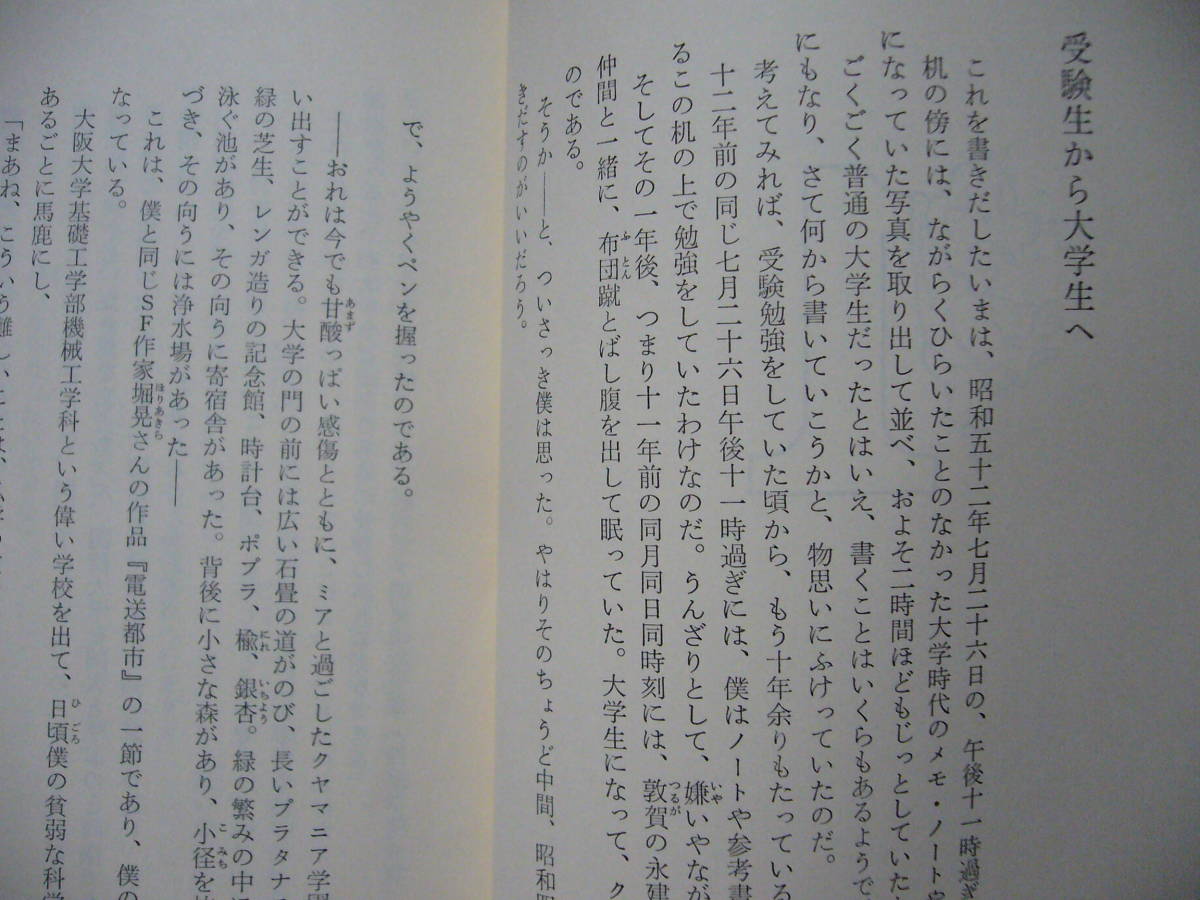 受験生から大学生へ
これを書きだしたいまは、昭和五十二年七月二十六日の、午後十一時過ぎ
机の傍には、ながらくひらいたことのなかった大学時代のメモ・ノートや
になっていた写真を取り出して並べ、およそ二時間ほどもじっとしていた
ごくごく普通の大学生だったとはいえ、書くことはいくらもあるようで
にもなり、さて何から書いていこうかと、物思いにふけっていたのだ。
考えてみれば、受験勉強をしていた頃から、もう十年余りもたっている
十二年前の同じ七月二十六日午後十一時過ぎには、僕はノートや参考書
るこの机の上で勉強をしていたわけなのだ。うんざりとして、嫌いやなが
そしてその一年後、つまり十一年前の同月同日同時刻には、敦賀の永建
仲間と一緒に、布団蹴とばし腹を出して眠っていた。大学生になって、ク
のである。
そうか――と、ついさっき僕は思った。やはりそのちょうど中間、昭和四
きだすのがいいだろう。
で、ようやくペンを握ったのである。
――おれは今でも甘酸っぱい感傷とともに、ミアと過ごしたクヤマニア学園
い出すことができる。大学の門の前には広い石畳の道がのび、長いプラタナ
緑の芝生、レンガ造りの記念館、時計台、ポプラ、楡、銀杏。緑の繁みの中
泳ぐ池があり、その向うに寄宿舎があった。背後に小さな森があり、小径を
づき、その向うには浄水場があった――
これは、僕と同じSF作家堀晃さんの作品『電送都市』の一節であり、僕の
なっている。
大阪大学基礎工学部機械工学科という偉い学校を出て、日頃僕の貧弱な科学
あるごとに馬鹿にし、
「まあね、こういう難しいことは、